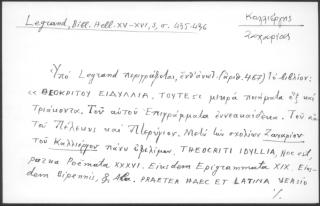 Legrand, Bill. Hell. XV-XVI, 3, σ. 435-436
Καλλιέργης
Ζαχαρίας
Ὑπὸ Legrand περιγράφεται, ἐνθ' ἀνωτ. (ἀριθ. 467) τὸ βιβλίον:
« ΘΕΟΚΡΙΤΟΥ ΕΙΔΥΛΛΙΑ, ΤΟΥΤΕΣΤΙ μικρὰ ποιήματα ἓξ καὶ
Τριάκοντα. Τοῦ αὐτοῦ Ἐπιγράμματα ἐννεακαίδεκα. Τοῦ αὐ-
τοῦ Πέλεκυς καὶ Πτερύγιον. Μετὰ τῶν σχολίων Ζαχαρίου
τοῦ Καλλιέργου πάνυ ὠφελίμων. THEOCRITI IDYLLIA, Hoc est,
parva Poëmata XXXVI. Eiusdem Epigrammata XIX. Eius-
dem Bipennis, & Ala. PRAETER HAEC ET LATINA VERSIO
./.